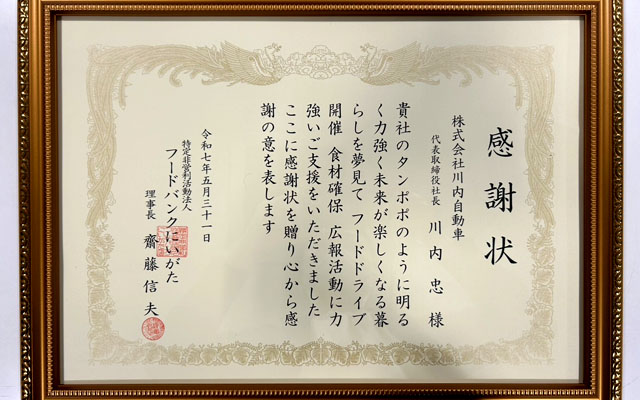 感謝状
株式会社川内自動車
代表取締役社長 川内 忠 様
貴社のタンポポのように明る
く力強く未来が楽しくなる暮
らしを夢見て フードドライブ
開催 食材確保 広報活動に力
強いご支援をいただきました
ここに感謝状を贈り心から感
謝の意を表します
令和七年五月三十一日
特定非営利活動法人
フードバンクにいがた
理事長 齋藤信夫